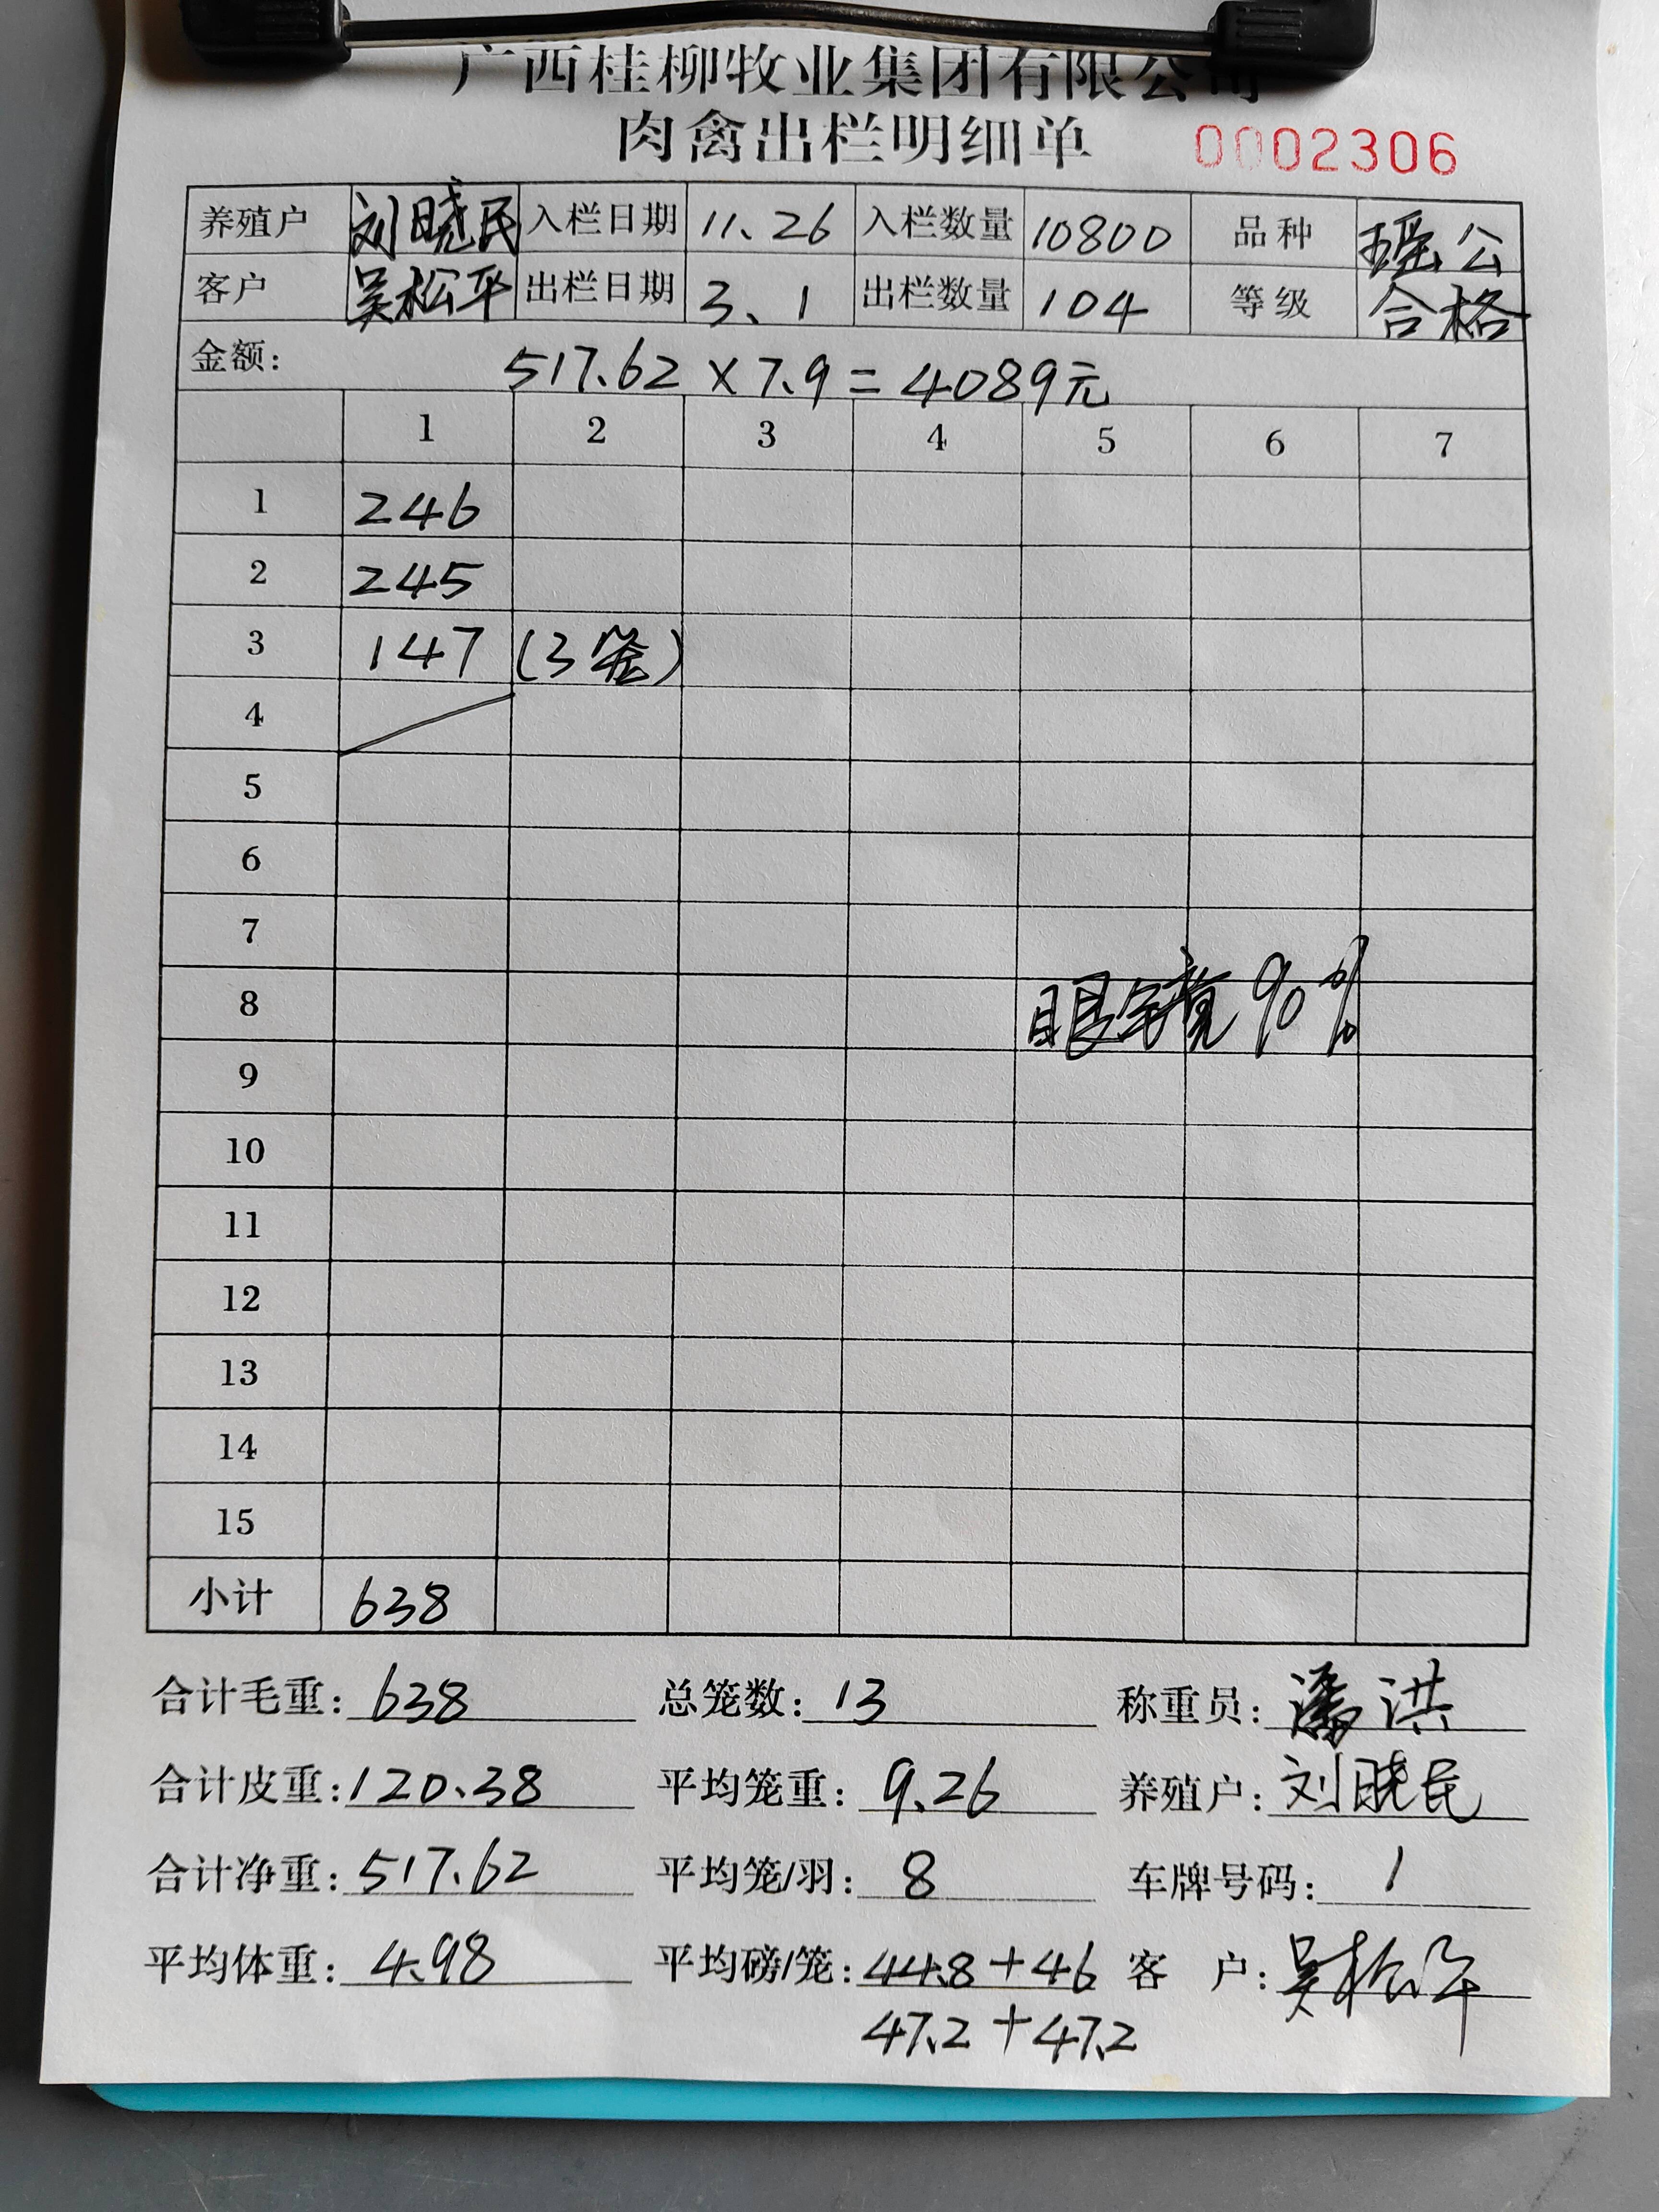 广西桂柳牧业集团有限公司
肉禽出栏明细单 0002306
养殖户 刘晓民 入栏日期 11、26 入栏数量 10800 品种 瑶公
客户 吴松平 出栏日期 3、1 出栏数量 104 等级 合格
金额: 517.62×7.9=4089元
1 2 3 4 5 6 7
1 246
2 245
3 147 (3笼)
4
5
6
7
8 眼睛亮90%
9
10
11
12
13
14
15
小计 638
合计毛重: 638 总笼数: 13 称重员: 潘洪
合计皮重: 120.38 平均笼重: 9.26 养殖户: 刘晓民
合计净重: 517.62 平均笼/羽: 8 车牌号码: 1
平均体重: 4.98 平均磅/笼: 44.8+46 客户: 吴松平
47.2+47.2